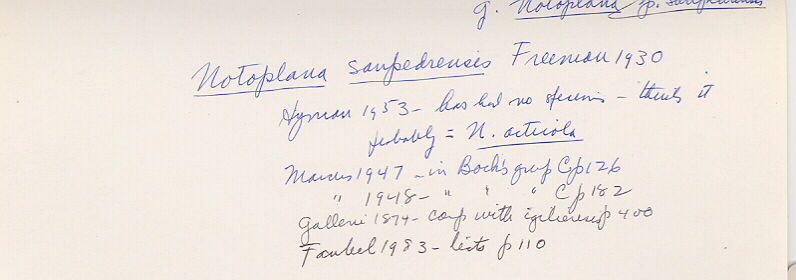 g. Notoplana sp. sanpedrensis
Notoplana sanpedrensis Freeman 1930
Hyman 1953 - has had no specimens - thinks it
probably = N. acticola
Marcus 1947 - in Bock's group C p 126
" 1948 - " " " C p 182
Galleni 1974 - comp with igiliensis p 400
Faubel 1983 - lists p 110